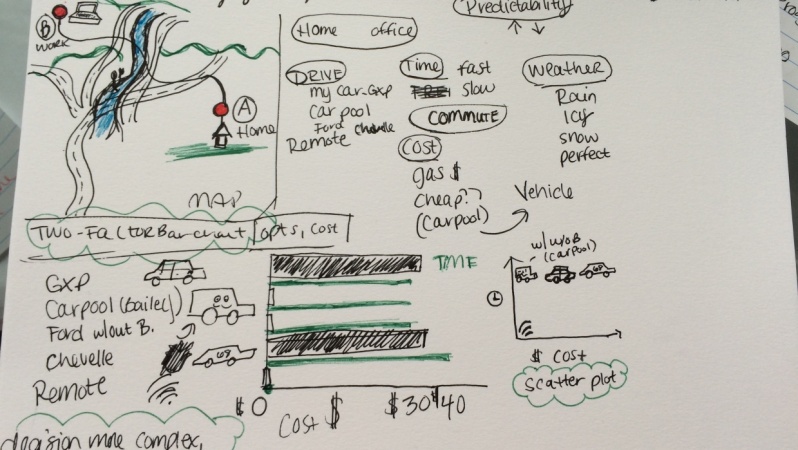 Predictability
B
WORK
Home office
DRIVE
my car-GXP
Carpool
Ford Chevelle
Remote
Time fast
slow
COMMUTE
COST
gas $
cheap??
(Carpool)
Weather
Rain
Icy
snow
perfect
Vehicle
A
Home
MAP
TWO-FACTOR Bar chart, opts, cost
GXP
Carpool (Bailey)
Ford w/out B.
Chevelle
Remote
69
TIME
$0
Cost $
$30 $40
w/ w/o B
(carpool)
$ Cost
scatter plot
decision more complex,